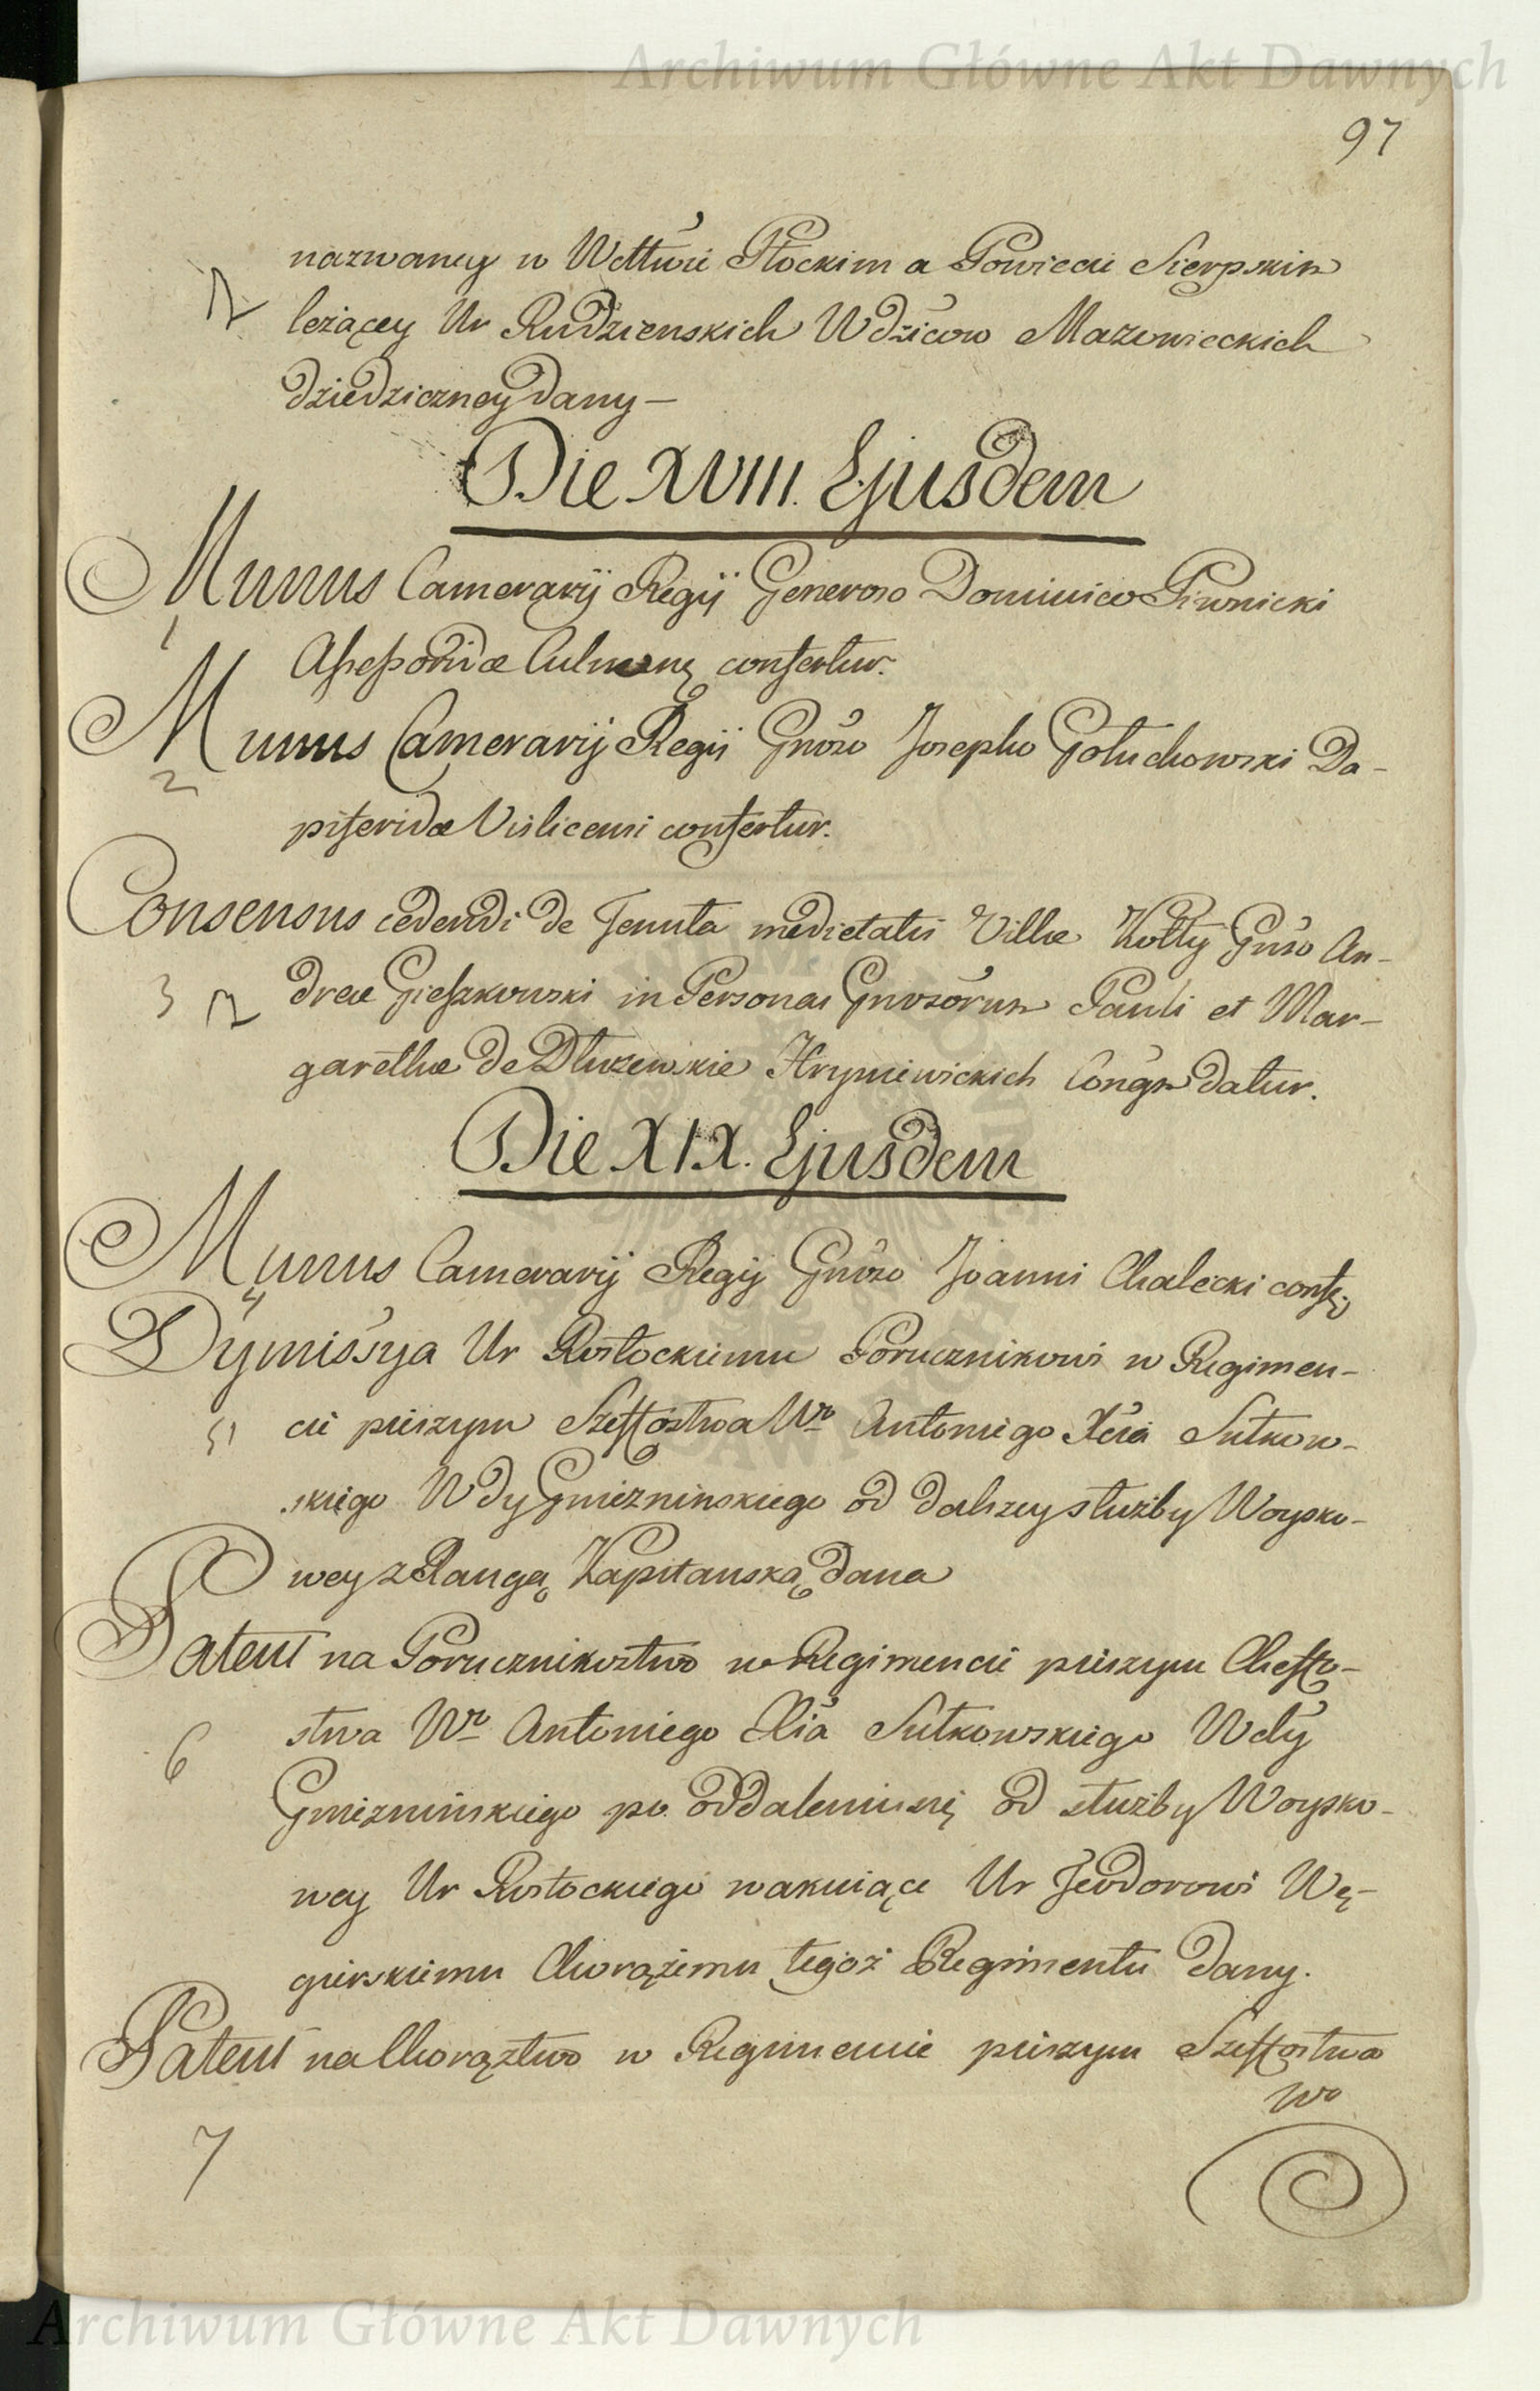 Archiwum Główne Akt Dawnych
97
nazwaney w Wdttwie Płockim a Powiecie Sierpskim
leżącey Ur Rudzienskich Wdźicow Mazowieckich
dziedziczney dany —
Die XVIII. Ejusdem
Munus Camerarij Regij Generoso Dominico Piwnicki
1
Assessoridæ Culmens confertur.
Munus Camerarij Regij Gnoso Josepho Gołuchowski Da-
2
piferidæ Visliceni confertur.
Consensus cedendi de Tenuta medietatis Villæ Kołty Gnso An-
3 dreæ Gieszkowski in Personas Gnosorum Pauli et Mar-
garethæ de Dłuzewskie Hryniewickich Congm datur.
Die XIX. Ejusdem
Munus Camerarij Regij Gnoso Joanni Chalecki confr
4
Dymissya Ur Rostockiemu Porucznikowi w Regimen-
5 cie pieszym Szeffostwa Wo Antoniego Xcia Sułkow-
skiego Wdy Gniezninskiego od dalszey służby Woysko-
wey z Rangą Kapitanską dana
Patent na Porucznikoztwo w Regimencie pieszym Cheffo-
6 stwa Wo Antoniego Xia Sułkowskiego Wdy
Gnieznińskiego po oddaleniu się od służby Woysko-
wey Ur Rostockiego wakuiące Ur Teodorowi Wę-
gierskiemu Chorążemu tegoż Regimentu dany.
Patent na Chorąztwo w Regimencie pieszym Szeffostwa
Wo
7
Archiwum Główne Akt Dawnych